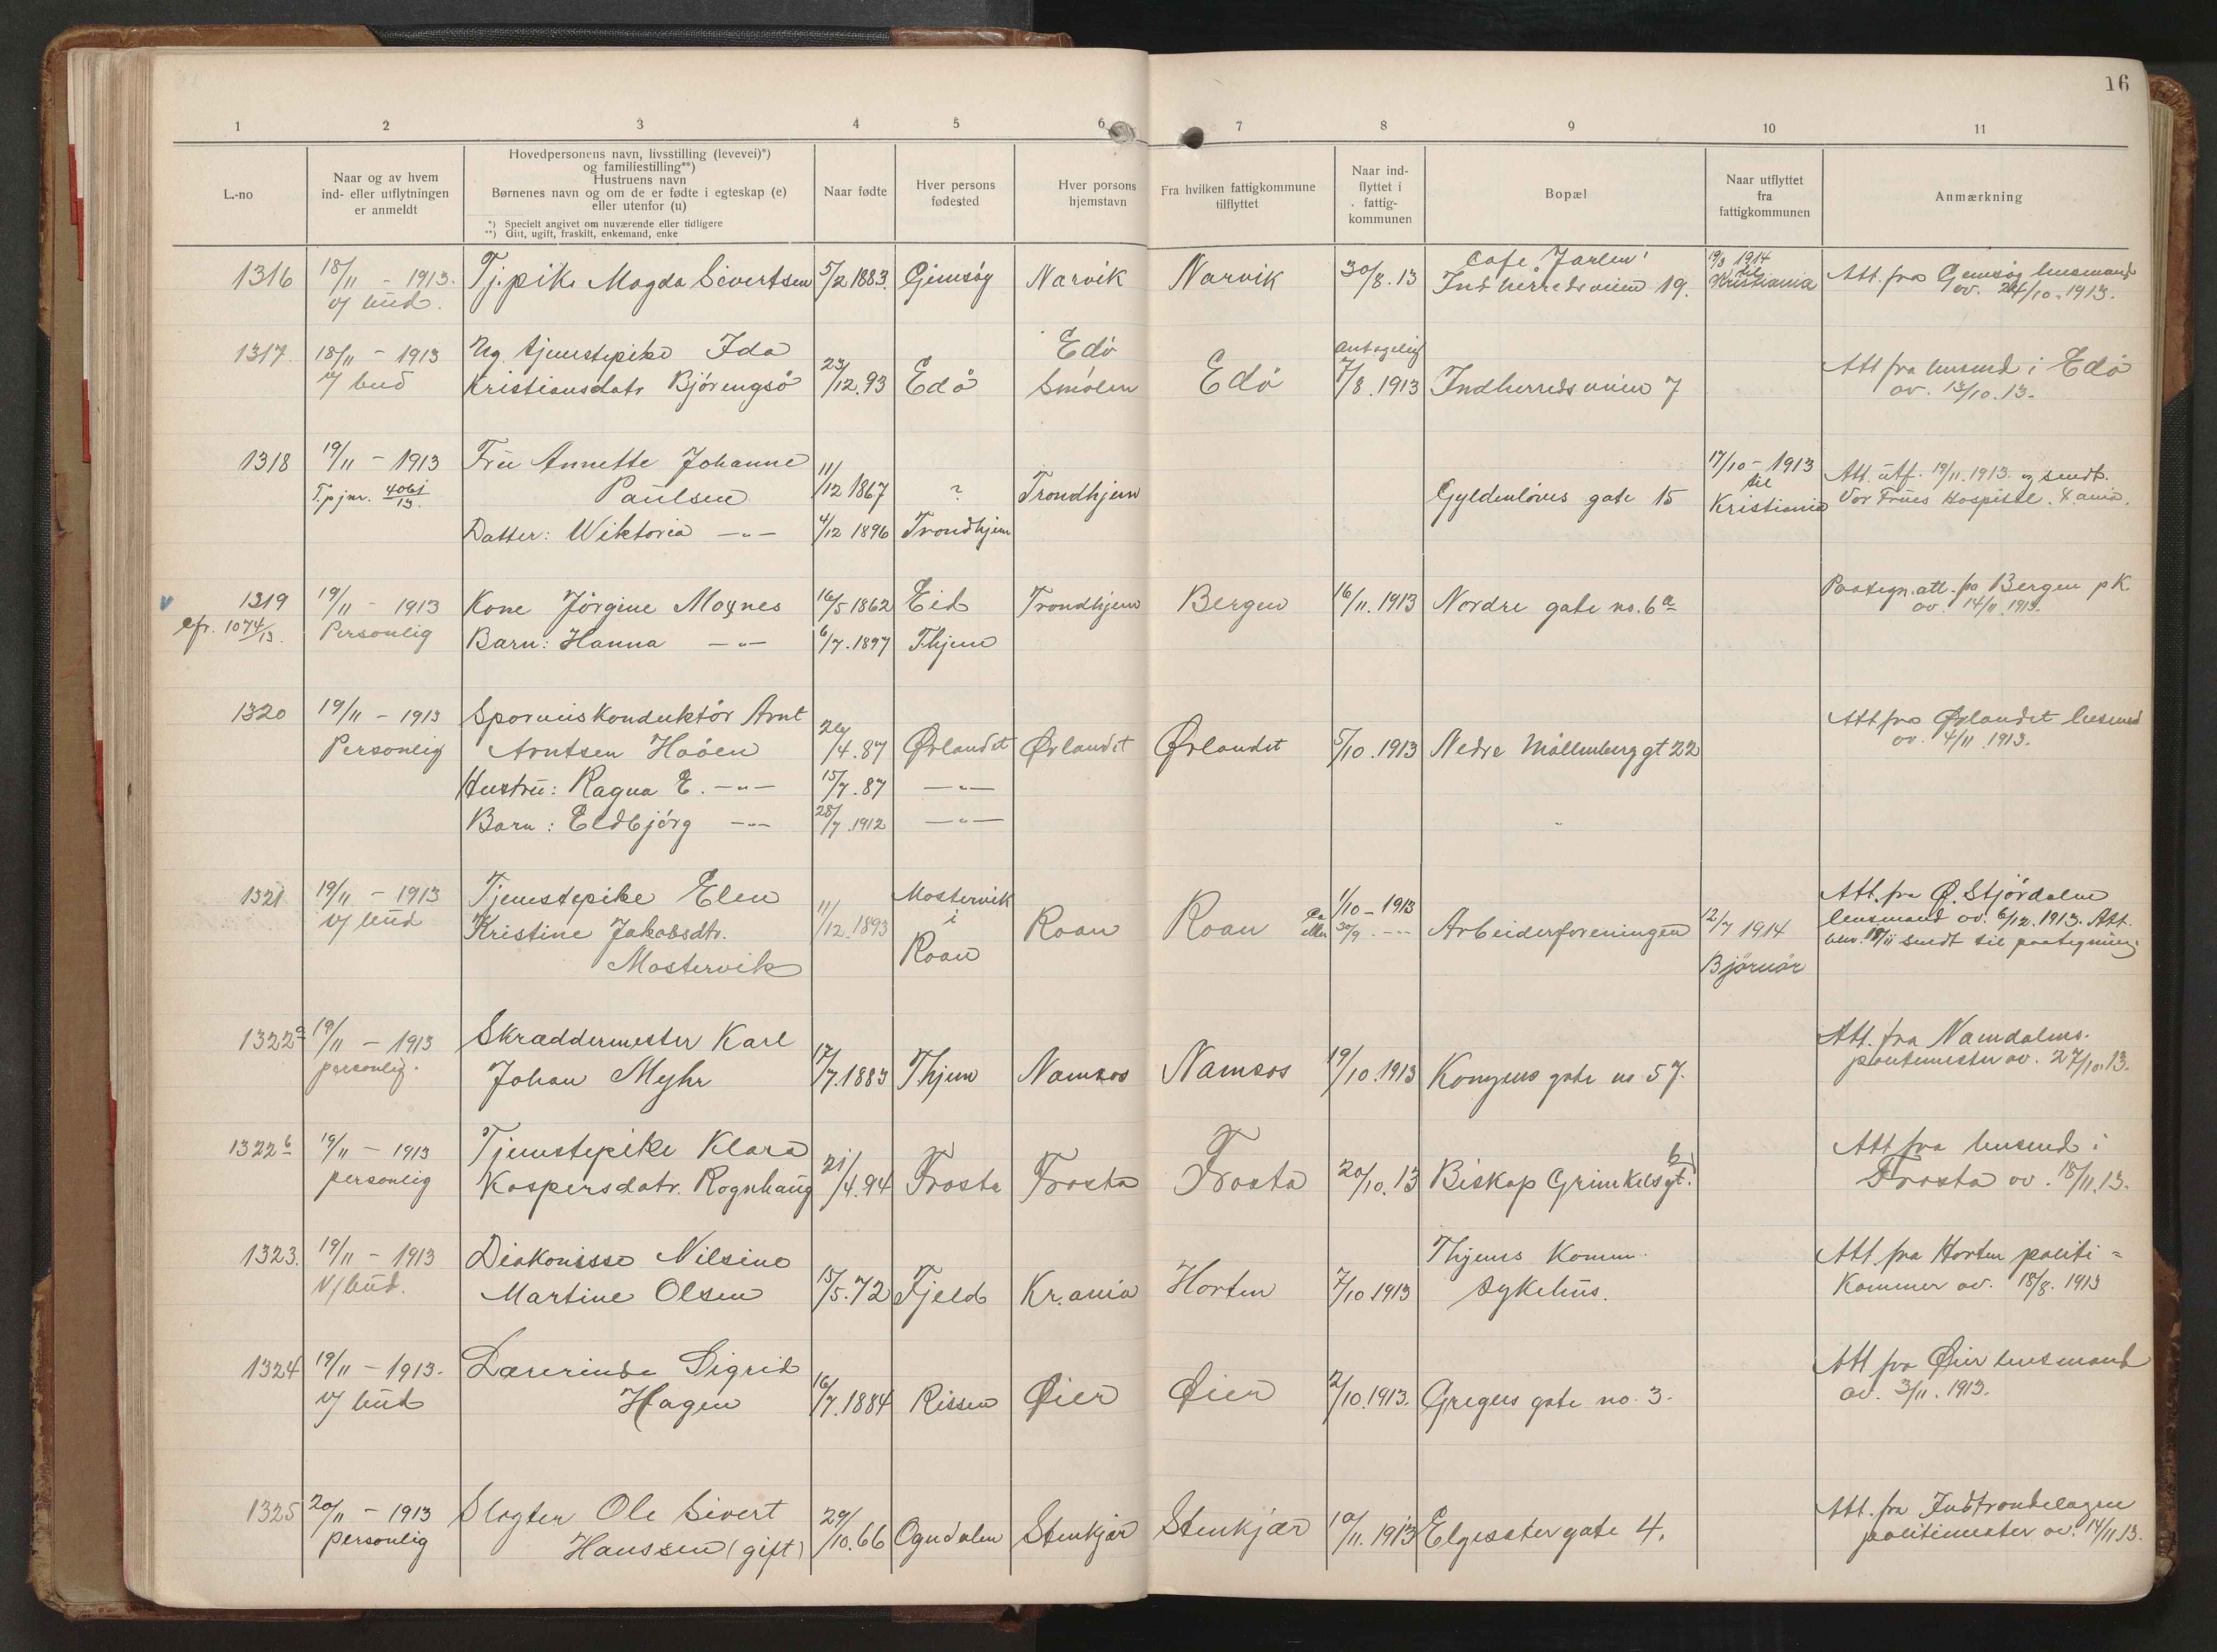 16
1 2 3 4 5 6 7 8 9 10 11
L.-no
Naar og av hvem
ind- eller utflytningen
er anmeldt
Hovedpersonens navn, livsstilling (levevei)*)
og familiestilling**)
Hustruens navn
Børnenes navn og om de er fødte i egteskap (e)
eller utenfor (u)
*) Specielt angivet om nuværende eller tidligere
**) Gift, ugift, fraskilt, enkemand, enke
Naar fødte
Hver persons
fødested
Hver porsons
hjemstavn
Fra hvilken fattigkommune
tilflyttet
Naar ind-
flyttet i
fattig-
kommunen
Bopæl
Naar utflyttet
fra
fattigkommunen
Anmærkning
Cafe "Jarlen" 19/3 1914
1316 18/11 - 1913. Tj.pike Magda Sivertsen 5/2 1883. Gimsøy Narvik Narvik 30/8.13 Indherredsveien 19. til Kristiania Att. fra Gimsøy lensmand
v/ bud. av. 24/10.1913.
1317 18/11 - 1913 Ug. tjenstepike Ida Edö antagelig
v/ bud Kristiansdatr Bjørengsö 23/12.93 Edö Smölen Edö 7/8.1913 Indherredsveien 7 Att fra lensmd i Edö
av. 13/10.13.
1318 19/11 - 1913 Fru Annette Johanne 17/10 - 1913
T.pjnr. 4061/13. Paulsen 11/12 1867 ? Trondhjem Gyldenløves gate 15 til Kristiania Att. utf. 19/11.1913. og sendt.
Vor Frues Hospital. X ania.
Datter: Wiktoria -"- 4/12 1896 Trondhjem
v 1319 19/11 - 1913 Kone Jörgine Moxnes 16/5 1862 Eid Trondhjem Bergen 16/11.1913 Nordre gate no. 6a Paategn. att. fra Bergen pK.
av. 14/11.1913.
cfr. 1074/13. Personlig Barn: Hanna -"- 6/7.1897 Thjem
1320 19/11 - 1913 Sporveiskonduktör Arnt Att fra Ørlandet lensmd
Personlig Arntsen Haöen /4.87 Ørlandet Ørlandet Ørlandet 5/10.1913 Nedre Möllenberggt 22 av. 4/11.1913.
Hustru: Ragna E. -"- 15/7.87 -"-
Barn: Eldbjörg -"- 28/7.1912 -"-
1321 19/11 - 1913 Tjenstepike Elen Mastervik 1/10 - 1913 Att. fra Ø. Stjördalen
v/ bud Kristine Jakobsdtr. 11/12.1893 i Roan Roan Ca eller 30/9. -"- Arbeiderforeningen 12/7 1914 lensmand av. 6/12.1913. Att.
Mastervik Roan Björnör 18/11 sendt til paategning.
1322a 19/11 - 1913 Skræddermester Karl Att. fra Namdalens.
personlig. Johan Myhr 17/7.1883 Thjem Namsos Namsos 19/10.1913 Kongens gate no 57. politimester av. 27/10.13.
1322b 19/11 - 1913 Tjenstepike Klara Att fra lensmd i
personlig Kaspersdatr. Rognhaug 21/4.94 Frosta Frosta Frosta 20/10.13 Biskop Grimkelsgt. 6 Frosta av. 18/11.13.
1323. 19/11 - 1913 Diakonisse Nilsine Thjems Komm. Att fra Horten politi=
v/ bud. Martine Olsen 15/5.72 Fjeld Kr.ania Horten 7/10.1913 sykehus. kammer av. 18/8. 1913
1324 19/11 - 1913. Lærerinde Sigrid Att fra Øier lensmand
v/ bud Hagen 16/7.1884 Rissen Øier Øier 2/10.1913. Gregus gate no. 3. av. 3/11. 1913.
1325 20/11 - 1913 Slagter Ole Sivert Att. fra Indtrondelagen
personlig Hanssen (gift) 29/10.66 Ogndalen Stenkjær Stenkjær 10/11.1913 Elgesæter gate 4. politimester av. 14/11.13.